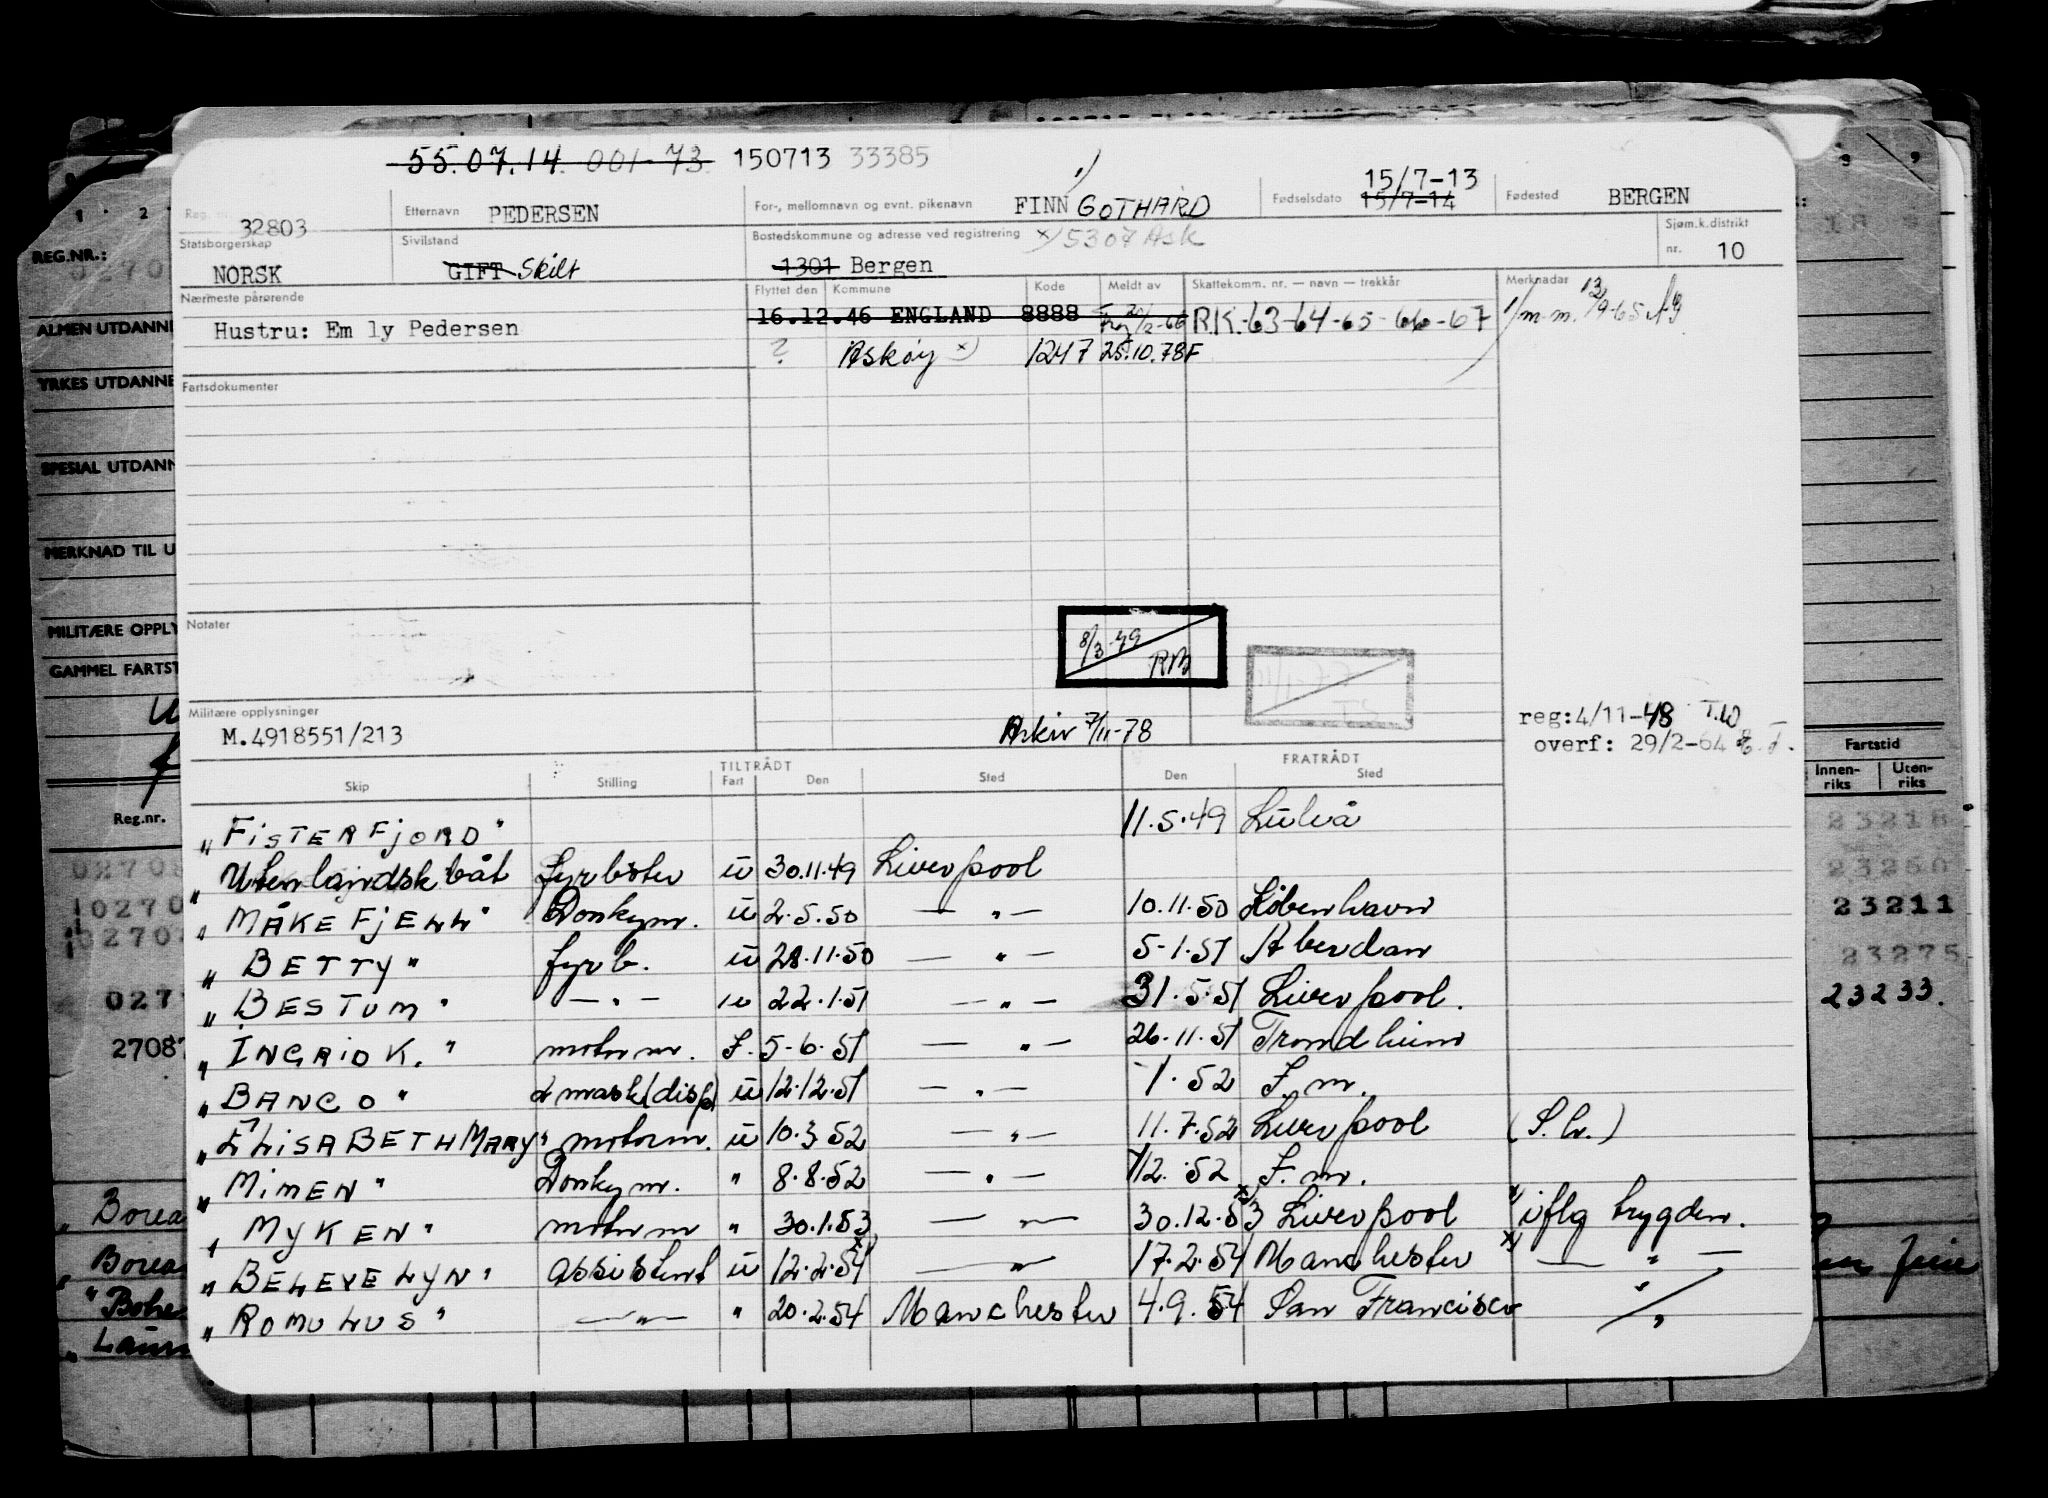 55.07.14. 001-73 150713 33385
Reg. nr. 32803 Etternavn PEDERSEN For-, mellomnavn og evnt. pikenavn FINN GOTHARD Fødselsdato 15/7-13 15/7-14 Fødested BERGEN
Statsborgerskap NORSK Sivilstand GIFT Skilt Bostedskommune og adresse ved registrering x) 5307 Ask 1301 Bergen Sjøm.k.distrikt nr. 10
Nærmeste pårørende Flyttet den Kommune Kode Meldt av Skattekomm. nr. — navn — trekkår Merknader
Hustru: Em ly Pedersen 16.12.46 ENGLAND 8888 R.K.-63-64-65-66-67
? Askøy x) 1247 25.10.78F
Fartsdokumenter
Notater
8/3-49 RM
Militære opplysninger
M.4918551/213 Arkiv 7/11-78
reg: 4/11-48 T.W
overf: 29/2-64
TILTRÅDT FRATRÅDT
Skip Stilling Fart Den Sted Den Sted
"FISTERFJORD" 11.5.49 Luleå
"Utenlandsk båt fyrbøter u 30.11.49 Liverpool
"MÅKEFJELL" Donkeym. u 2.5.50 — " — 10.11.50 København
"BETTY" fyrb. u 28.11.50 — " — 5-1.51 Aberdan
"BESTUM" — " — u 22.1.51 — " — 31.5.51 Liverpool.
"INGRID K." motorm. I. 5-6.51 — " — 26.11.51 Trondheim
"BANCO" 2 mask(disp) u 12.12.51 — " — -1.52 F.m.
"ELISABETH MARY" motorm. u 10.3.52 — " — 11.7.52 Liverpool
"MIMEN" Donkeym. " 8.8.52 — " — /12.52 F.m.
"MYKEN" motorm " 30.1.53 — " — 30.12.53 x) Liverpool x) iflg trygden.
"BELEVELYN" assistent u 12.2.54 x) — " — 17.2.54 Manchester x) — " —
"ROMULUS" — " — " 20.2.54 Manchester 4.9.54 San Francisco
REG.NR.:
ALMEN UTDANNE
YRKES UTDANNE
SPESIAL UTDANN
MERKNAD TIL U
MILITÆRE OPPLY
GAMMEL FARTST
Reg.nr.
27087
Fartstid
Innen-riks Uten-riks
23218
23250
23211
23275
23233.